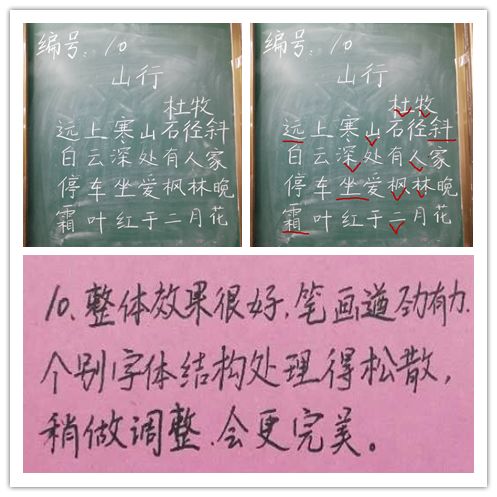 编号：10
山行
杜牧
远上寒山石径斜
白云深处有人家
停车坐爱枫林晚
霜叶红于二月花
编号：10
山行
杜牧
远上寒山石径斜
白云深处有人家
停车坐爱枫林晚
霜叶红于二月花
10、整体效果很好，笔画遒劲有力.
个别字体结构处理得松散，
稍做调整.会更完美。